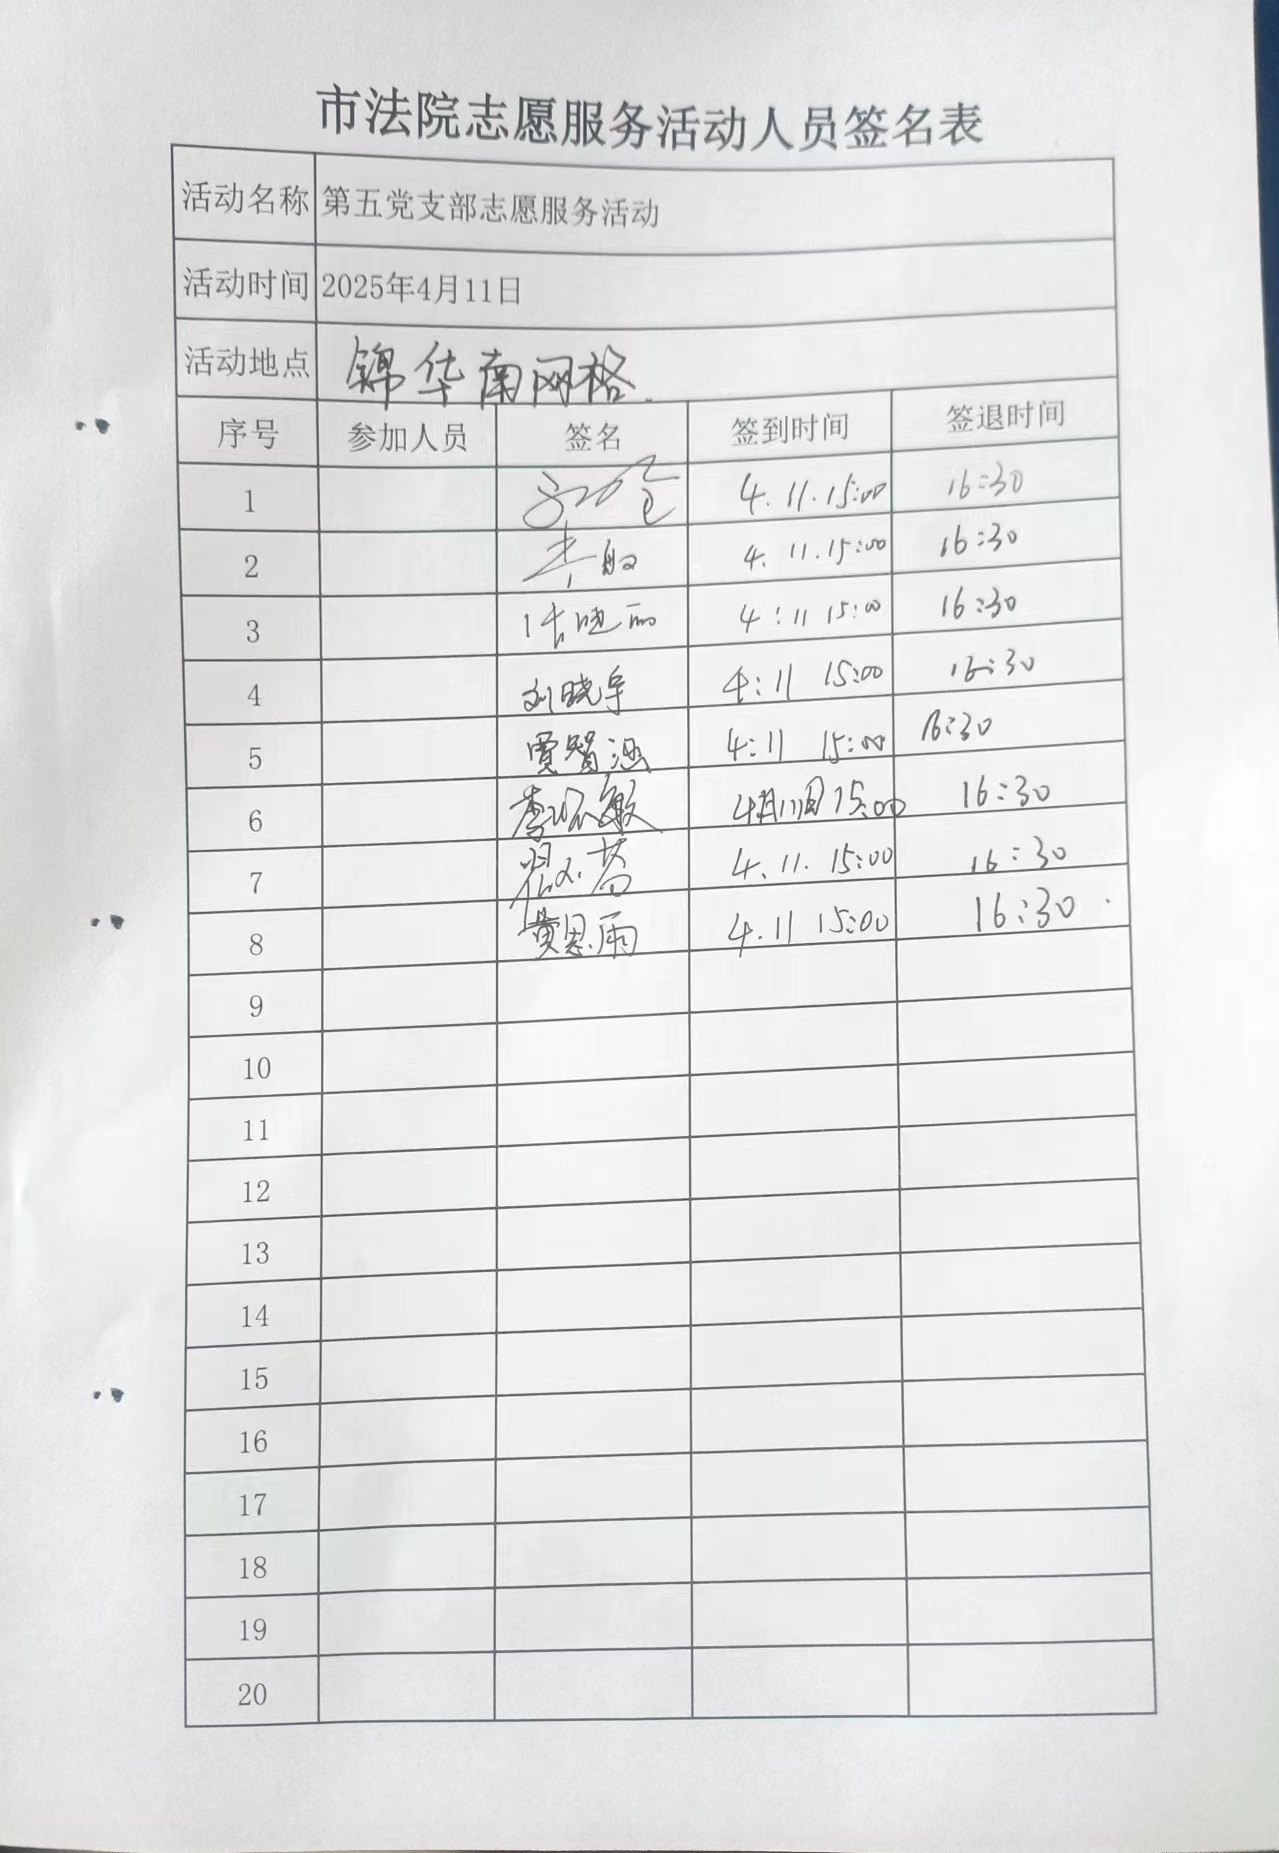 市法院志愿服务活动人员签名表
活动名称 第五党支部志愿服务活动
活动时间 2025年4月11日
活动地点 锦华南网格.
序号 参加人员 签名 签到时间 签退时间
1 4.11.15:00 16:30
2 4.11.15:00 16:30
3 张晓丽 4:11 15:00 16:30
4 刘晓宇 4:11 15:00 16:30
5 贾智涵 4:11 15:00 16:30
6 李 敏 4月11日15:00 16:30
7 4.11.15:00 16:30
8 黄恩雨 4.11 15:00 16:30
9
10
11
12
13
14
15
16
17
18
19
20